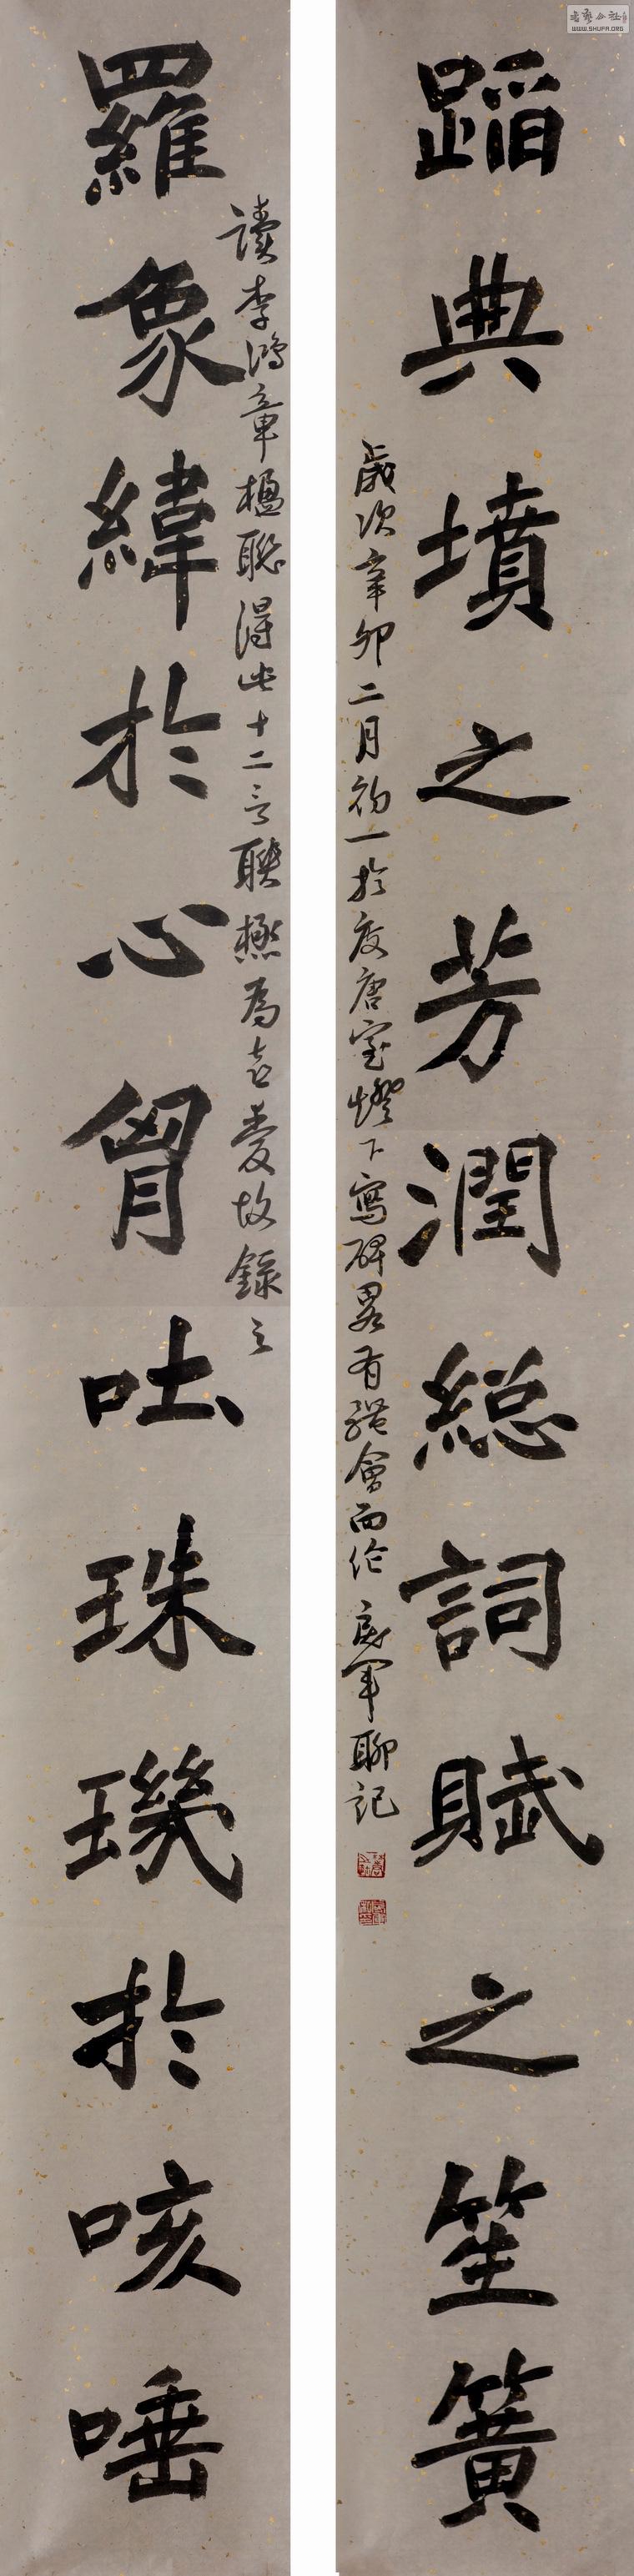 蹈典墳之芳潤総詞賦之笙簧
歲次辛卯二月初一於度唐室燈下寫碑畧有體會而作 亮軍聊記
羅象緯於心胷吐珠璣於咳唾
讀李鴻章楹聯得此十二言聯極為喜愛故錄之
WWW.SHUFA.ORG